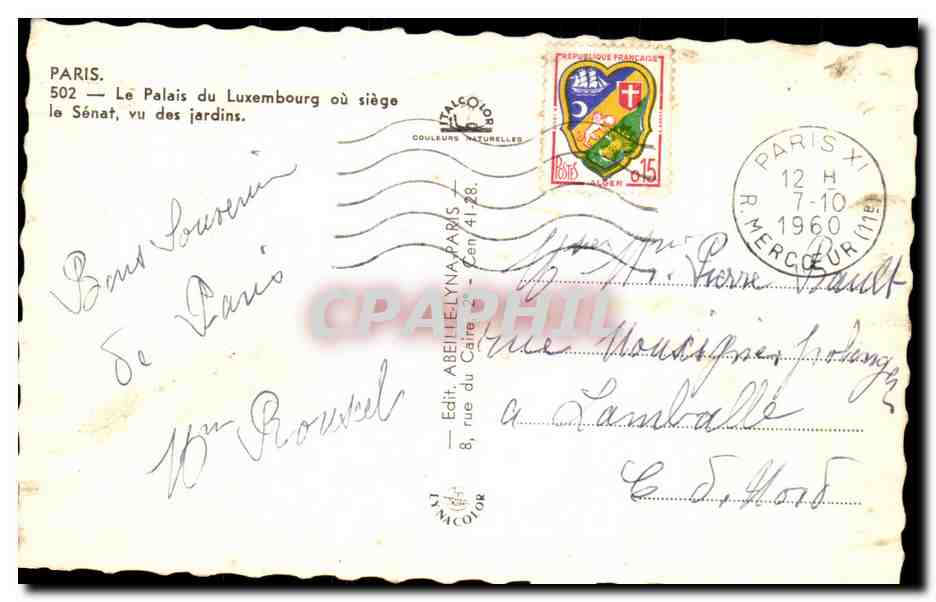 PARIS.
502 — Le Palais du Luxembourg où siège
le Sénat, vu des jardins.
ITALCOLOR
COULEURS NATURELLES
REPUBLIQUE FRANÇAISE
POSTES
0,15
ALGER
PARIS XI
12 H
7-10
1960
R. MERCŒUR (11e)
Bons Souvenir
de Paris
Mme Rouxel
— Edit. ABEILLE-LYNA-PARIS —
8, rue du Caire 2e - Cen. 41-28.
LYNACOLOR
Mr Mme Pierre Rault
rue
a Lamballe
C d. Nord
CPAPHIL